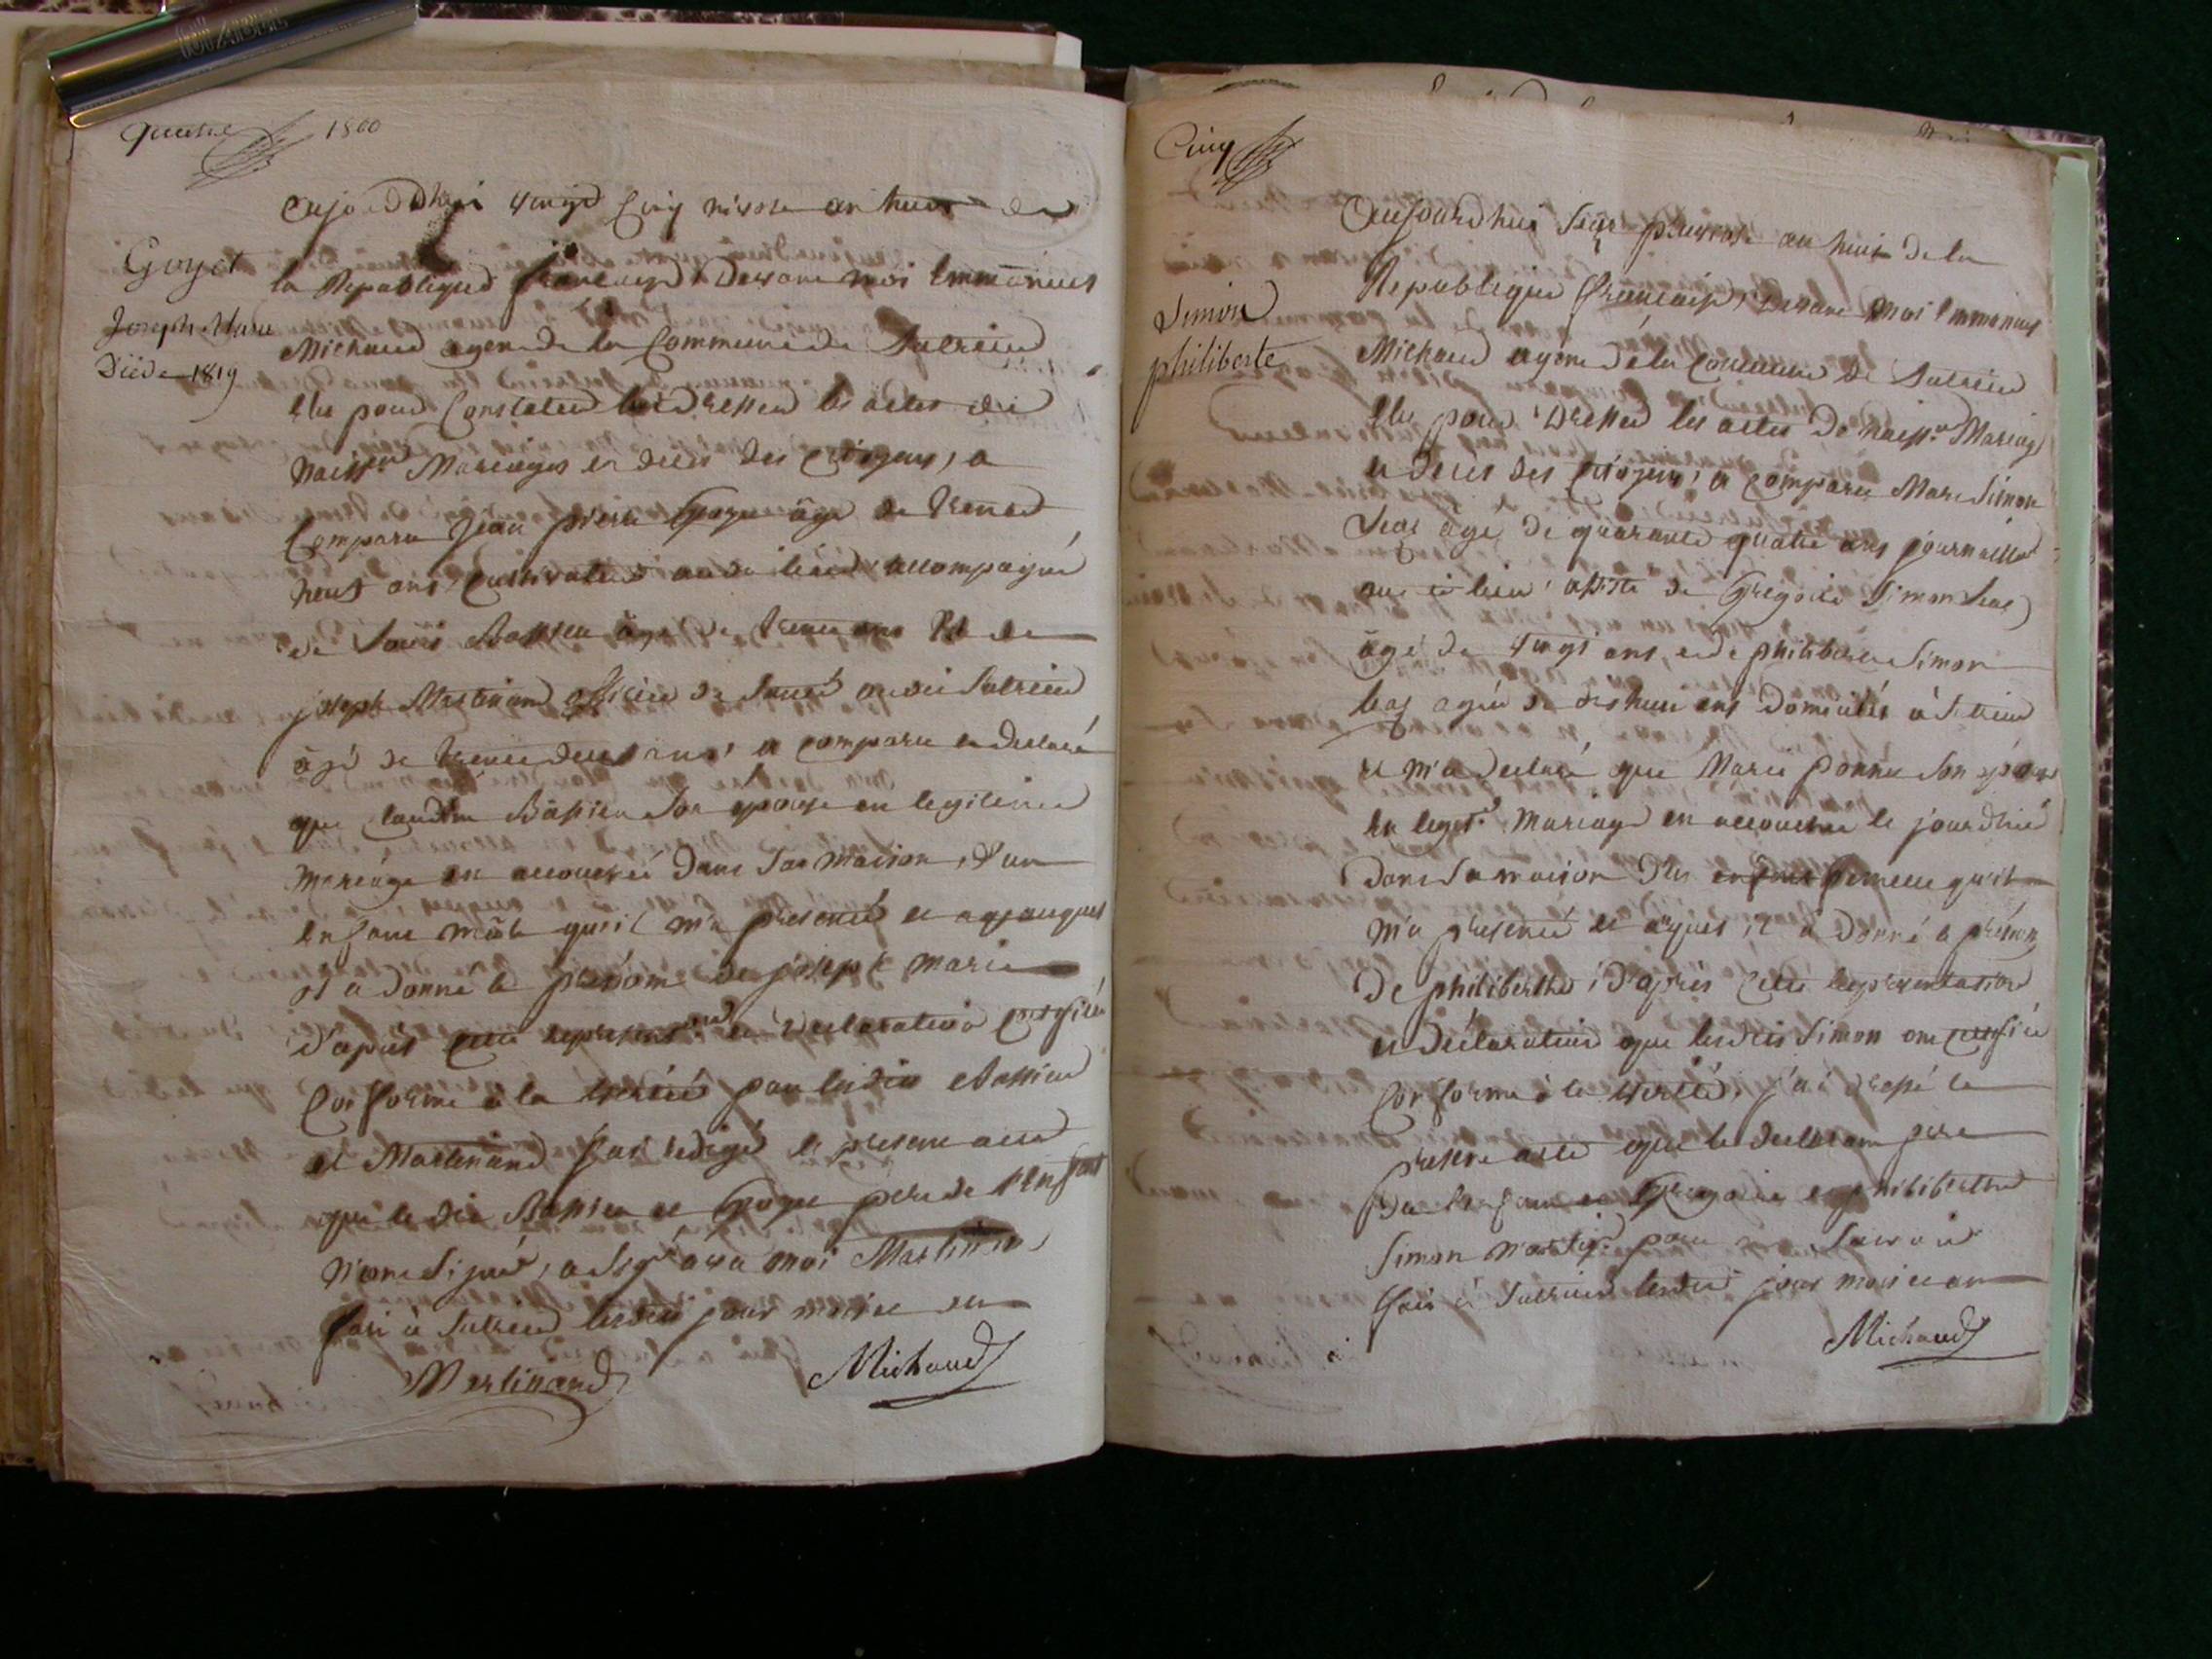 quatre 1800
Goyet
Joseph Marie
Décédé 1819
aujourdhui vingt Cinq nivose an huit de
la Republique francaise devant moi Emmanuel
Michaud agent de la Commune de Sutrieu
Elu pour Constater et dresser les actes de
naissce Mariages et deces des citoyens, a
Comparu Jean pierre Goyet âgé de trente
neuf ans, Cultivateur audit lieu accompagné
de Louis Bassieu âgé de trente ans et de
joseph Martinand officier de Santé audit Sutrieu
âgé de trente deux ans, a comparu et declaré
que Claudine Bassieu Son epouse en legitime
mariage est accouchée dans Sa maison, d'un
enfant mâle qu'il m'a presenté et auquel
il a donné le prénom de joseph marie
d'après cette represent.on et declaration certifiée
Conforme à la verité par lesdits Bassieu
et Martinand j'ai redigé le present acte
que ledit Bassieu et Goyet pere de l'enfant
n'ont Signé, a Signé avec moi Martinand
fait à Sutrieu lesdits jour mois et an
Martinand Michaud
Cinq
Simon
philiberte
aujourdhui pluviose an huit de la
Republique francaise, devant moi Emmanuel
Michaud agent de la Commune de Sutrieu
Elu pour dresser les actes de naissce Mariage
et deces des citoyens, a comparu Marc Simon
âgé de quarante quatre ans journallier
audit lieu assisté de Gregoire Simon
âgé de vingt ans, et de philiberte Simon
agée de dixhuit ans domiciliés à Sutrieu
et m'a declaré que Marie Son épouse
en legit.e Mariage est accouchée le jourdhui
dans Sa maison d'un enfant femelle qu'il
m'a presenté et auquel il a donné le prénom
de philiberthe, d'après cette representation
et déclaration que lesdits Simon ont certifiée
Conforme à la verité, j'ai dressé le
present acte que le declarant pere
de l'enfant et Gregoire et philiberthe
Simon n'ont Signé pour ne Savoir
fait à Sutrieu lesdits jour mois et an
Michaud